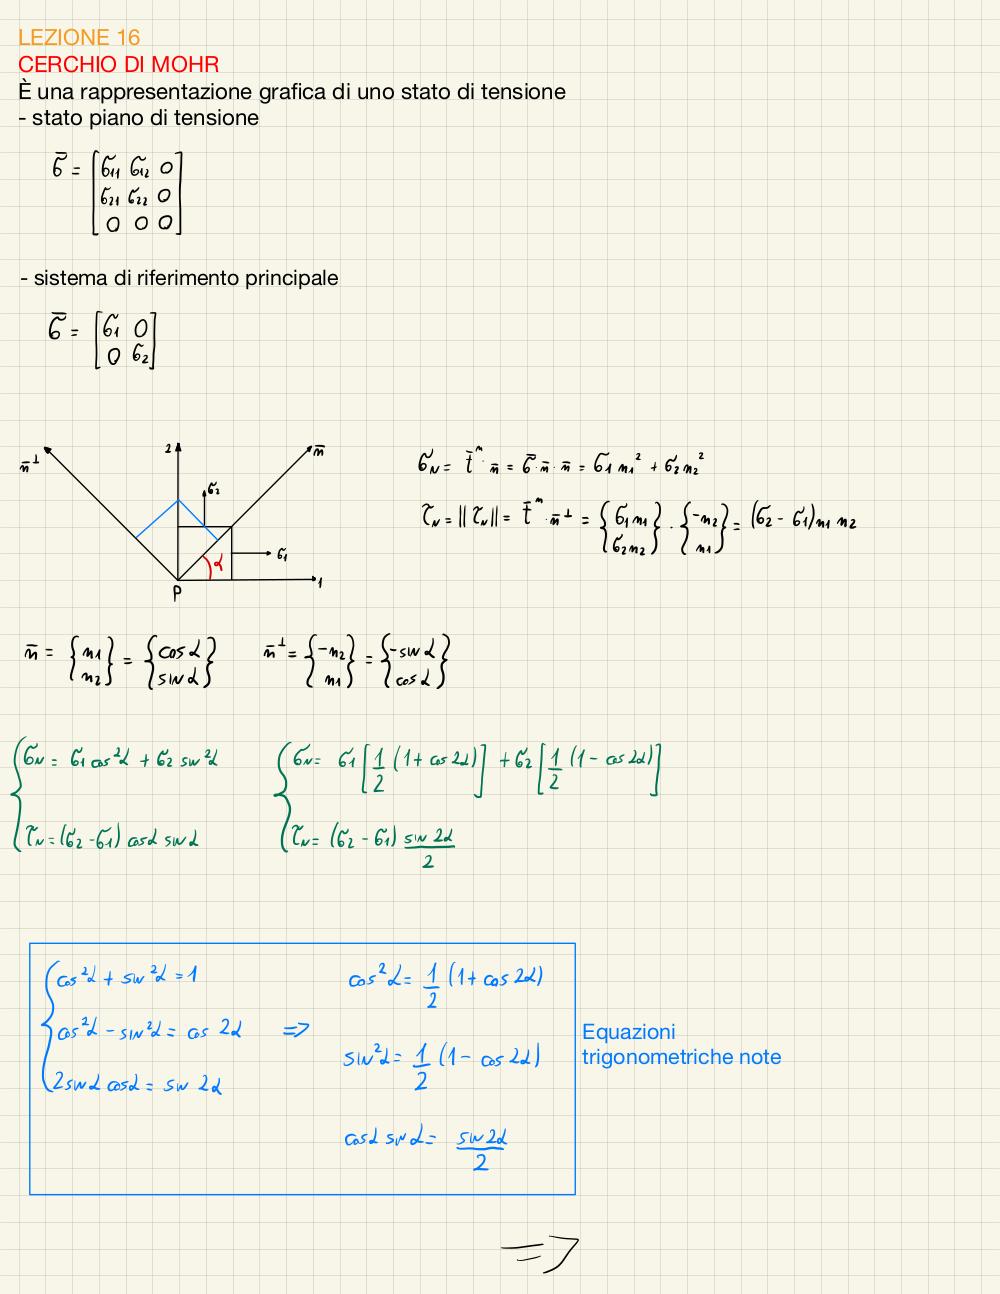 LEZIONE 16
CERCHIO DI MOHR
È una rappresentazione grafica di uno stato di tensione
- stato piano di tensione
σ̄ = [σ11 σ12 0
σ21 σ22 0
0 0 0]
- sistema di riferimento principale
σ̄ = [σ1 0
0 σ2]
n̄⊥ 2 n̄
σ2
σ1
α
P 1
σN = t̄ⁿ · n̄ = σ̄ · n̄ · n̄ = σ1 n1² + σ2 n2²
τN = || τ̄N || = t̄ⁿ · n̄⊥ = {σ1 n1
σ2 n2} · {-n2
n1} = (σ2 - σ1) n1 n2
n̄ = {n1
n2} = {cos α
sin α} n̄⊥ = {-n2
n1} = {-sin α
cos α}
{σN = σ1 cos²α + σ2 sin²α
τN = (σ2 - σ1) cos α sin α
{σN = σ1 [1/2 (1 + cos 2α)] + σ2 [1/2 (1 - cos 2α)]
τN = (σ2 - σ1) sin 2α / 2
{cos²α + sin²α = 1
cos²α - sin²α = cos 2α
2 sin α cos α = sin 2α
=>
cos²α = 1/2 (1 + cos 2α)
sin²α = 1/2 (1 - cos 2α)
cos α sin α = sin 2α / 2
Equazioni
trigonometriche note
=>